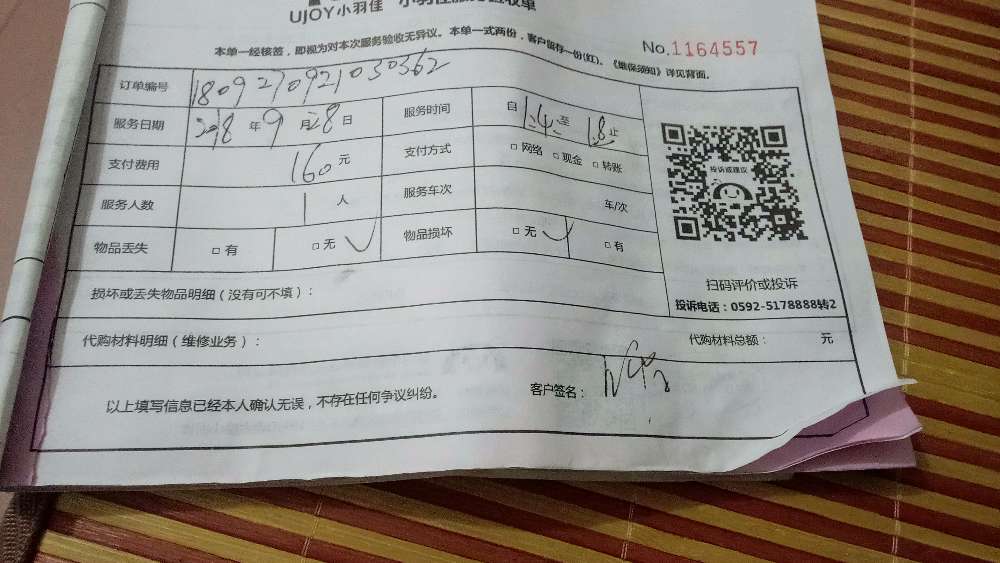 UJOY小羽佳 小羽佳服务验收单
本单一经核签，即视为对本次服务验收无异议。本单一式两份，客户留存一份(红)。《维保须知》详见背面。
No.1164557
订单编号 1809270921030362
服务日期 2018年9月28日 服务时间 自14至18止
支付费用 160元 支付方式 □网络 □现金 □转账
服务人数 1人 服务车次 车/次
物品丢失 □有 □无 ✓ 物品损坏 □无 ✓ □有
投诉或建议
扫码评价或投诉
投诉电话：0592-5178888转2
损坏或丢失物品明细（没有可不填）：
代购材料明细（维修业务）： 代购材料总额： 元
以上填写信息已经本人确认无误，不存在任何争议纠纷。 客户签名：